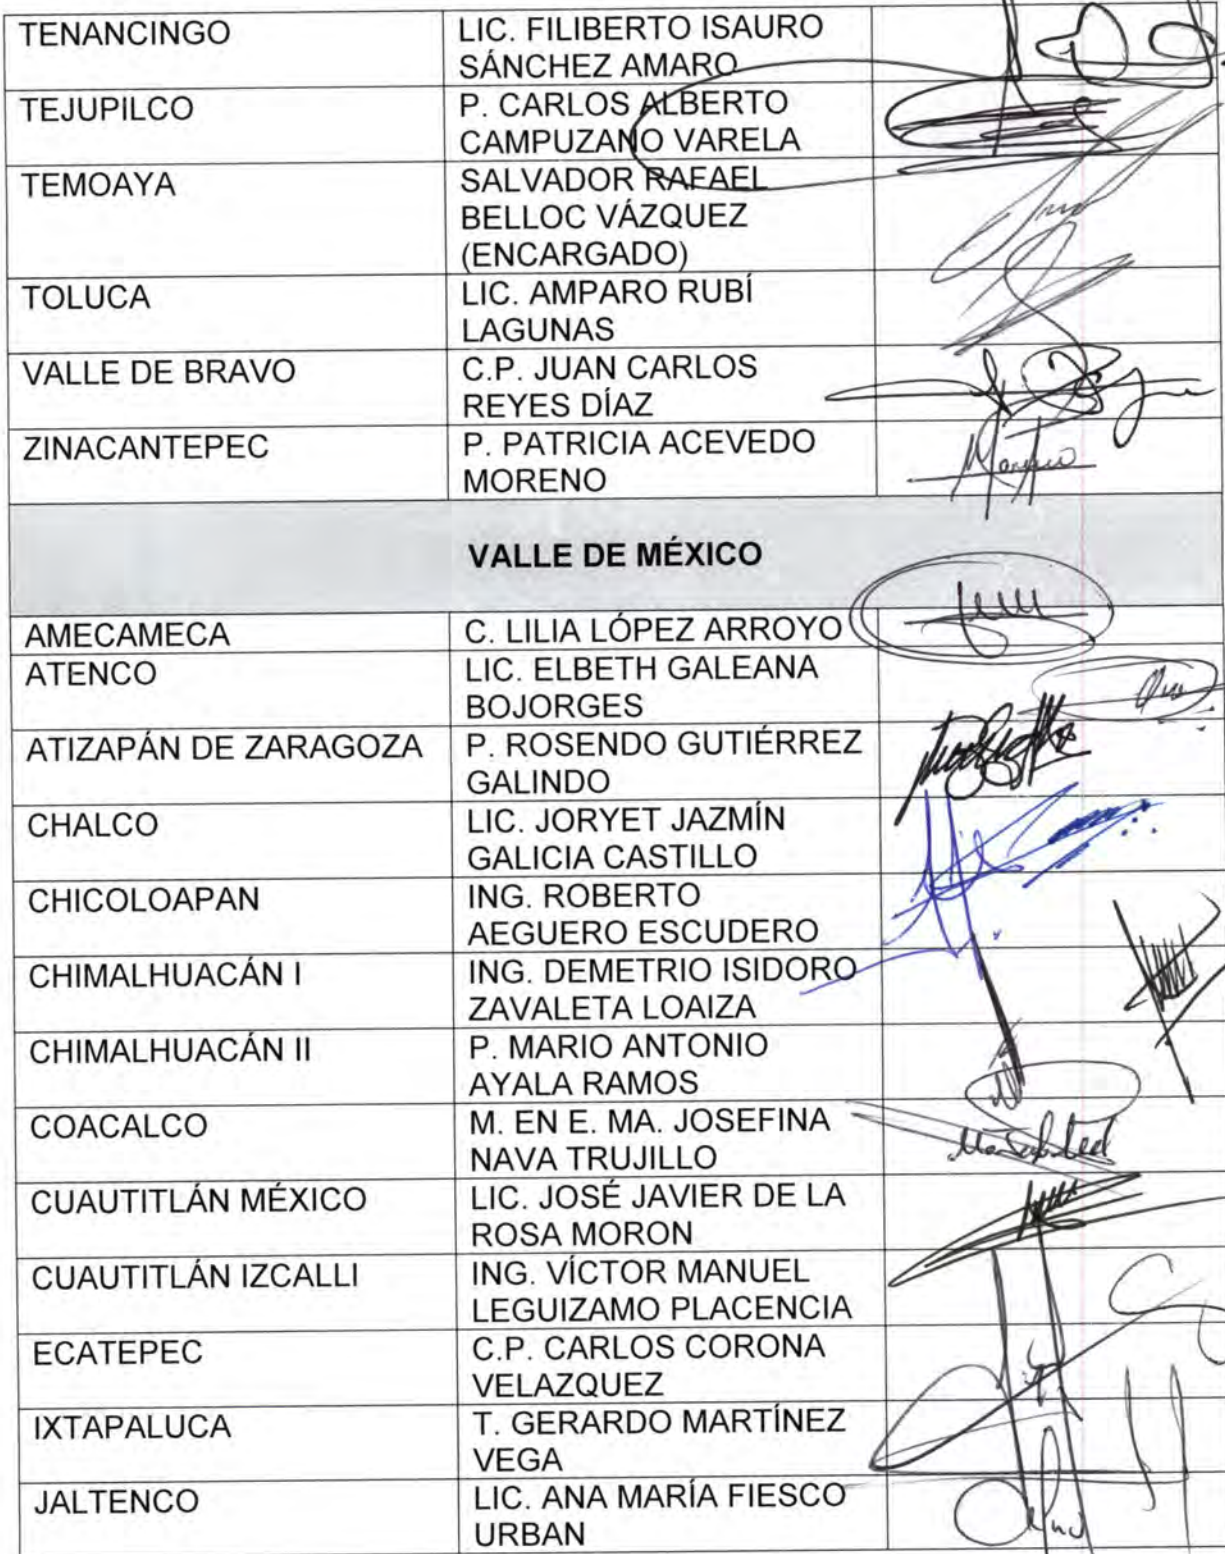 TENANCINGO LIC. FILIBERTO ISAURO
SÁNCHEZ AMARO
TEJUPILCO P. CARLOS ALBERTO
CAMPUZANO VARELA
TEMOAYA SALVADOR RAFAEL
BELLOC VÁZQUEZ
(ENCARGADO)
TOLUCA LIC. AMPARO RUBÍ
LAGUNAS
VALLE DE BRAVO C.P. JUAN CARLOS
REYES DÍAZ
ZINACANTEPEC P. PATRICIA ACEVEDO
MORENO
VALLE DE MÉXICO
AMECAMECA C. LILIA LÓPEZ ARROYO
ATENCO LIC. ELBETH GALEANA
BOJORGES
ATIZAPÁN DE ZARAGOZA P. ROSENDO GUTIÉRREZ
GALINDO
CHALCO LIC. JORYET JAZMÍN
GALICIA CASTILLO
CHICOLOAPAN ING. ROBERTO
AEGUERO ESCUDERO
CHIMALHUACÁN I ING. DEMETRIO ISIDORO
ZAVALETA LOAIZA
CHIMALHUACÁN II P. MARIO ANTONIO
AYALA RAMOS
COACALCO M. EN E. MA. JOSEFINA
NAVA TRUJILLO
CUAUTITLÁN MÉXICO LIC. JOSÉ JAVIER DE LA
ROSA MORON
CUAUTITLÁN IZCALLI ING. VÍCTOR MANUEL
LEGUIZAMO PLACENCIA
ECATEPEC C.P. CARLOS CORONA
VELAZQUEZ
IXTAPALUCA T. GERARDO MARTÍNEZ
VEGA
JALTENCO LIC. ANA MARÍA FIESCO
URBAN